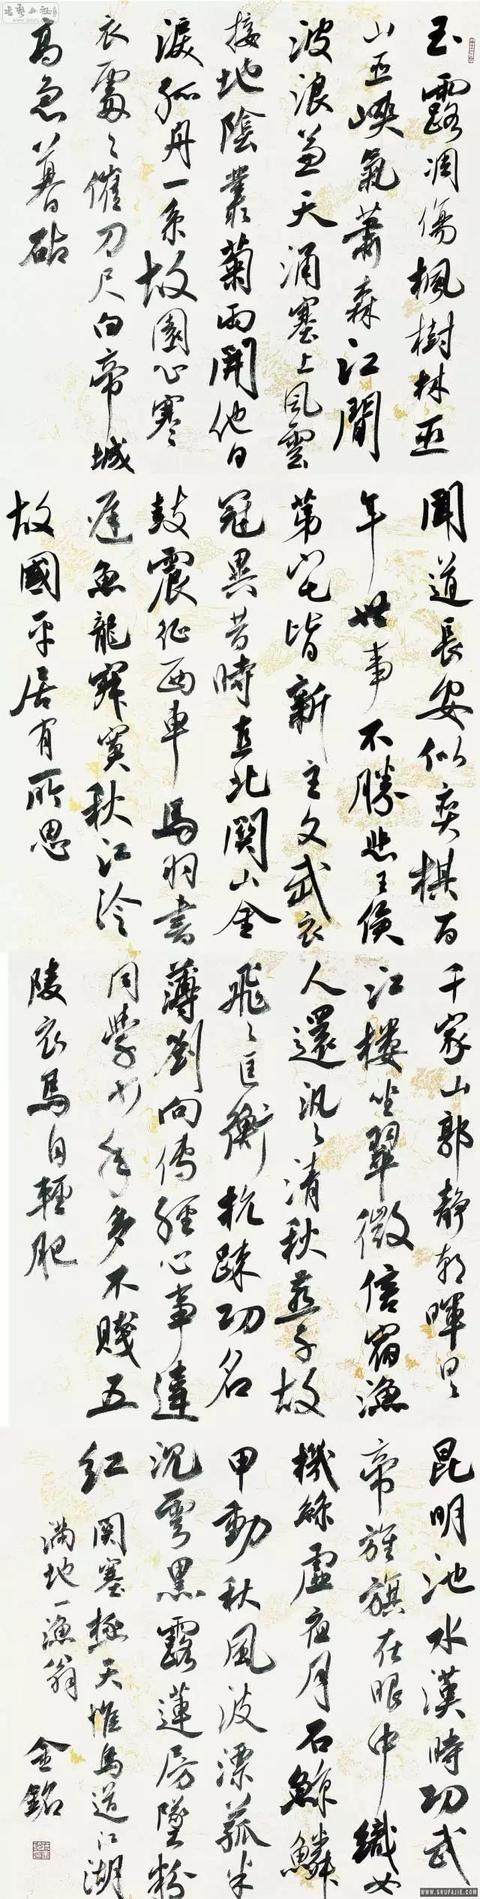 玉露凋傷楓樹林巫
山巫峽氣蕭森江間
波浪兼天涌塞上風雲
接地陰叢菊兩開他日
淚孤舟一系故園心寒
衣處々催刀尺白帝城
高急暮砧
聞道長安似奕棋百
年世事不勝悲王侯
第宅皆新主文武衣
冠異昔時直北關山金
鼓震征西車馬羽書
遲魚龍寂寞秋江冷
故國平居有所思
千家山郭靜朝暉日々
江樓坐翠微信宿漁
人還汎々清秋燕子故
飛々匡衡抗疏功名
薄劉向傳經心事違
同學少年多不賤五
陵衣馬自輕肥
昆明池水漢時功武
帝旌旗在眼中織女
機絲虛夜月石鯨鱗
甲動秋風波漂菰米
沉雲黑露蓮房墜粉
紅關塞極天惟鳥道江湖
滿地一漁翁 金銘
WWW.SHUFAJIE.COM